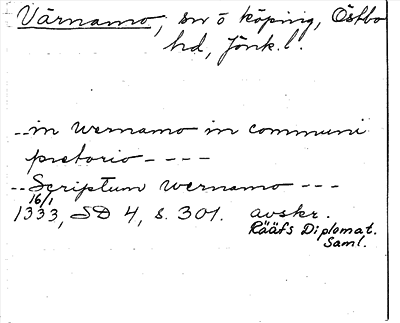 Värnamo, sn o köping, Östbo
hd, Jönk. l.
-- in wernamo in communi
pretorio - - - -
-- Scriptum wernamo - - -
16/1
1333, SD 4, s. 301. avskr.
Rääfs Diplomat.
Saml.